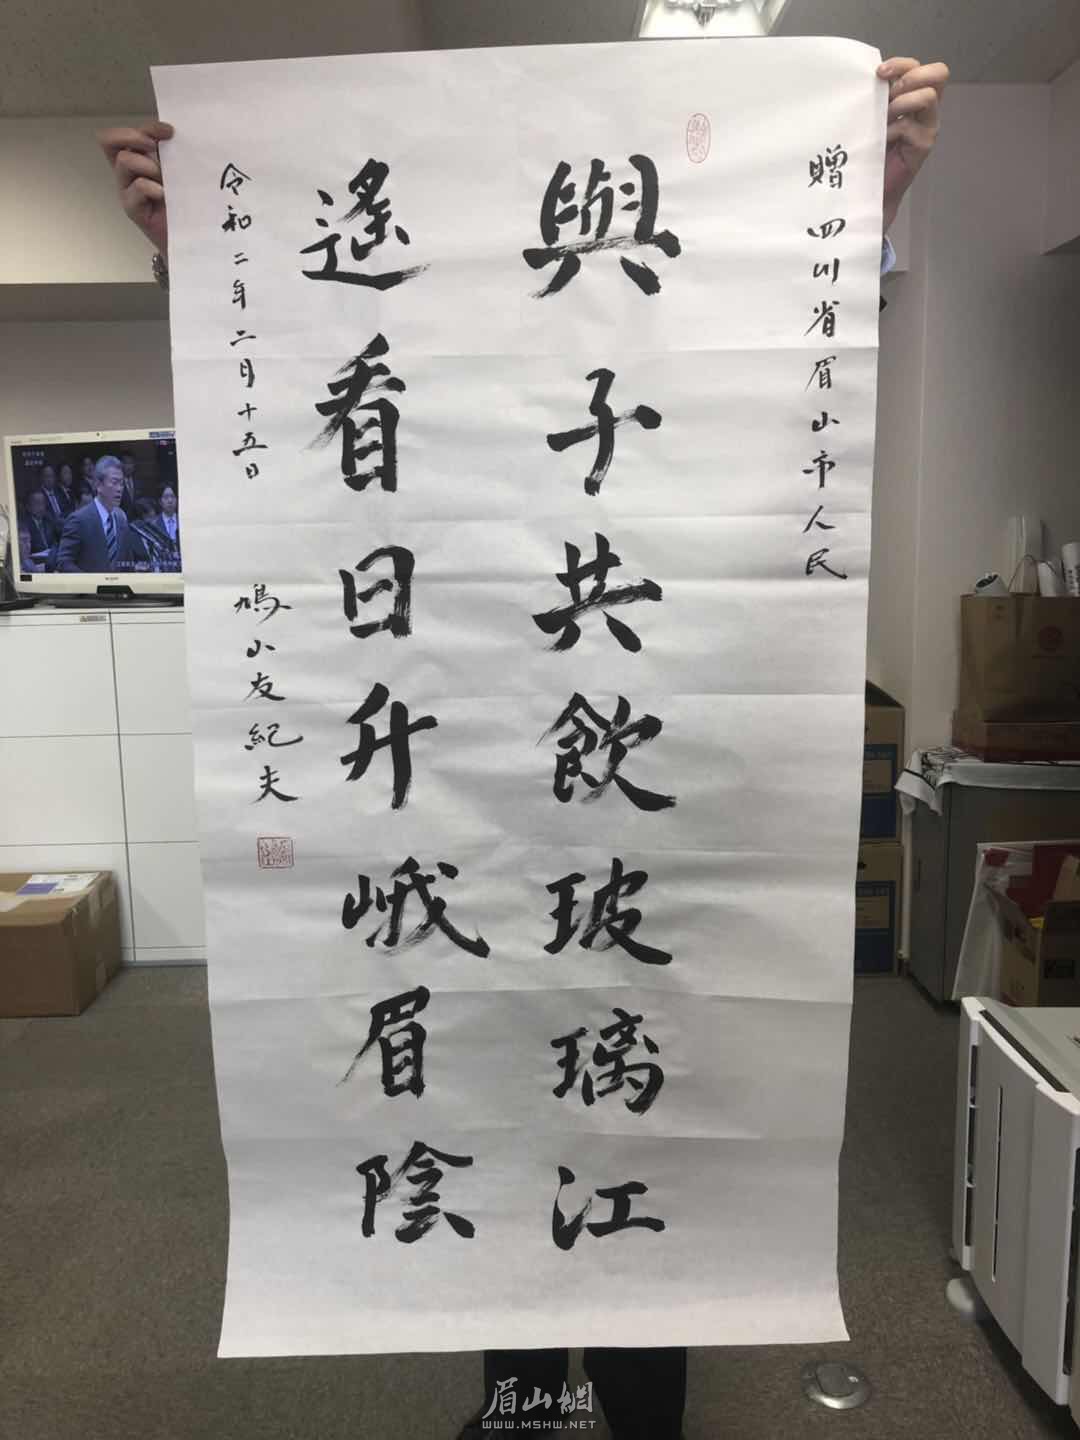 贈四川省眉山市人民
與子共飲玻璃江
遙看日升峨眉陰
令和二年二月十五日
鳩山友紀夫
眉山網
WWW.MSHW.NET